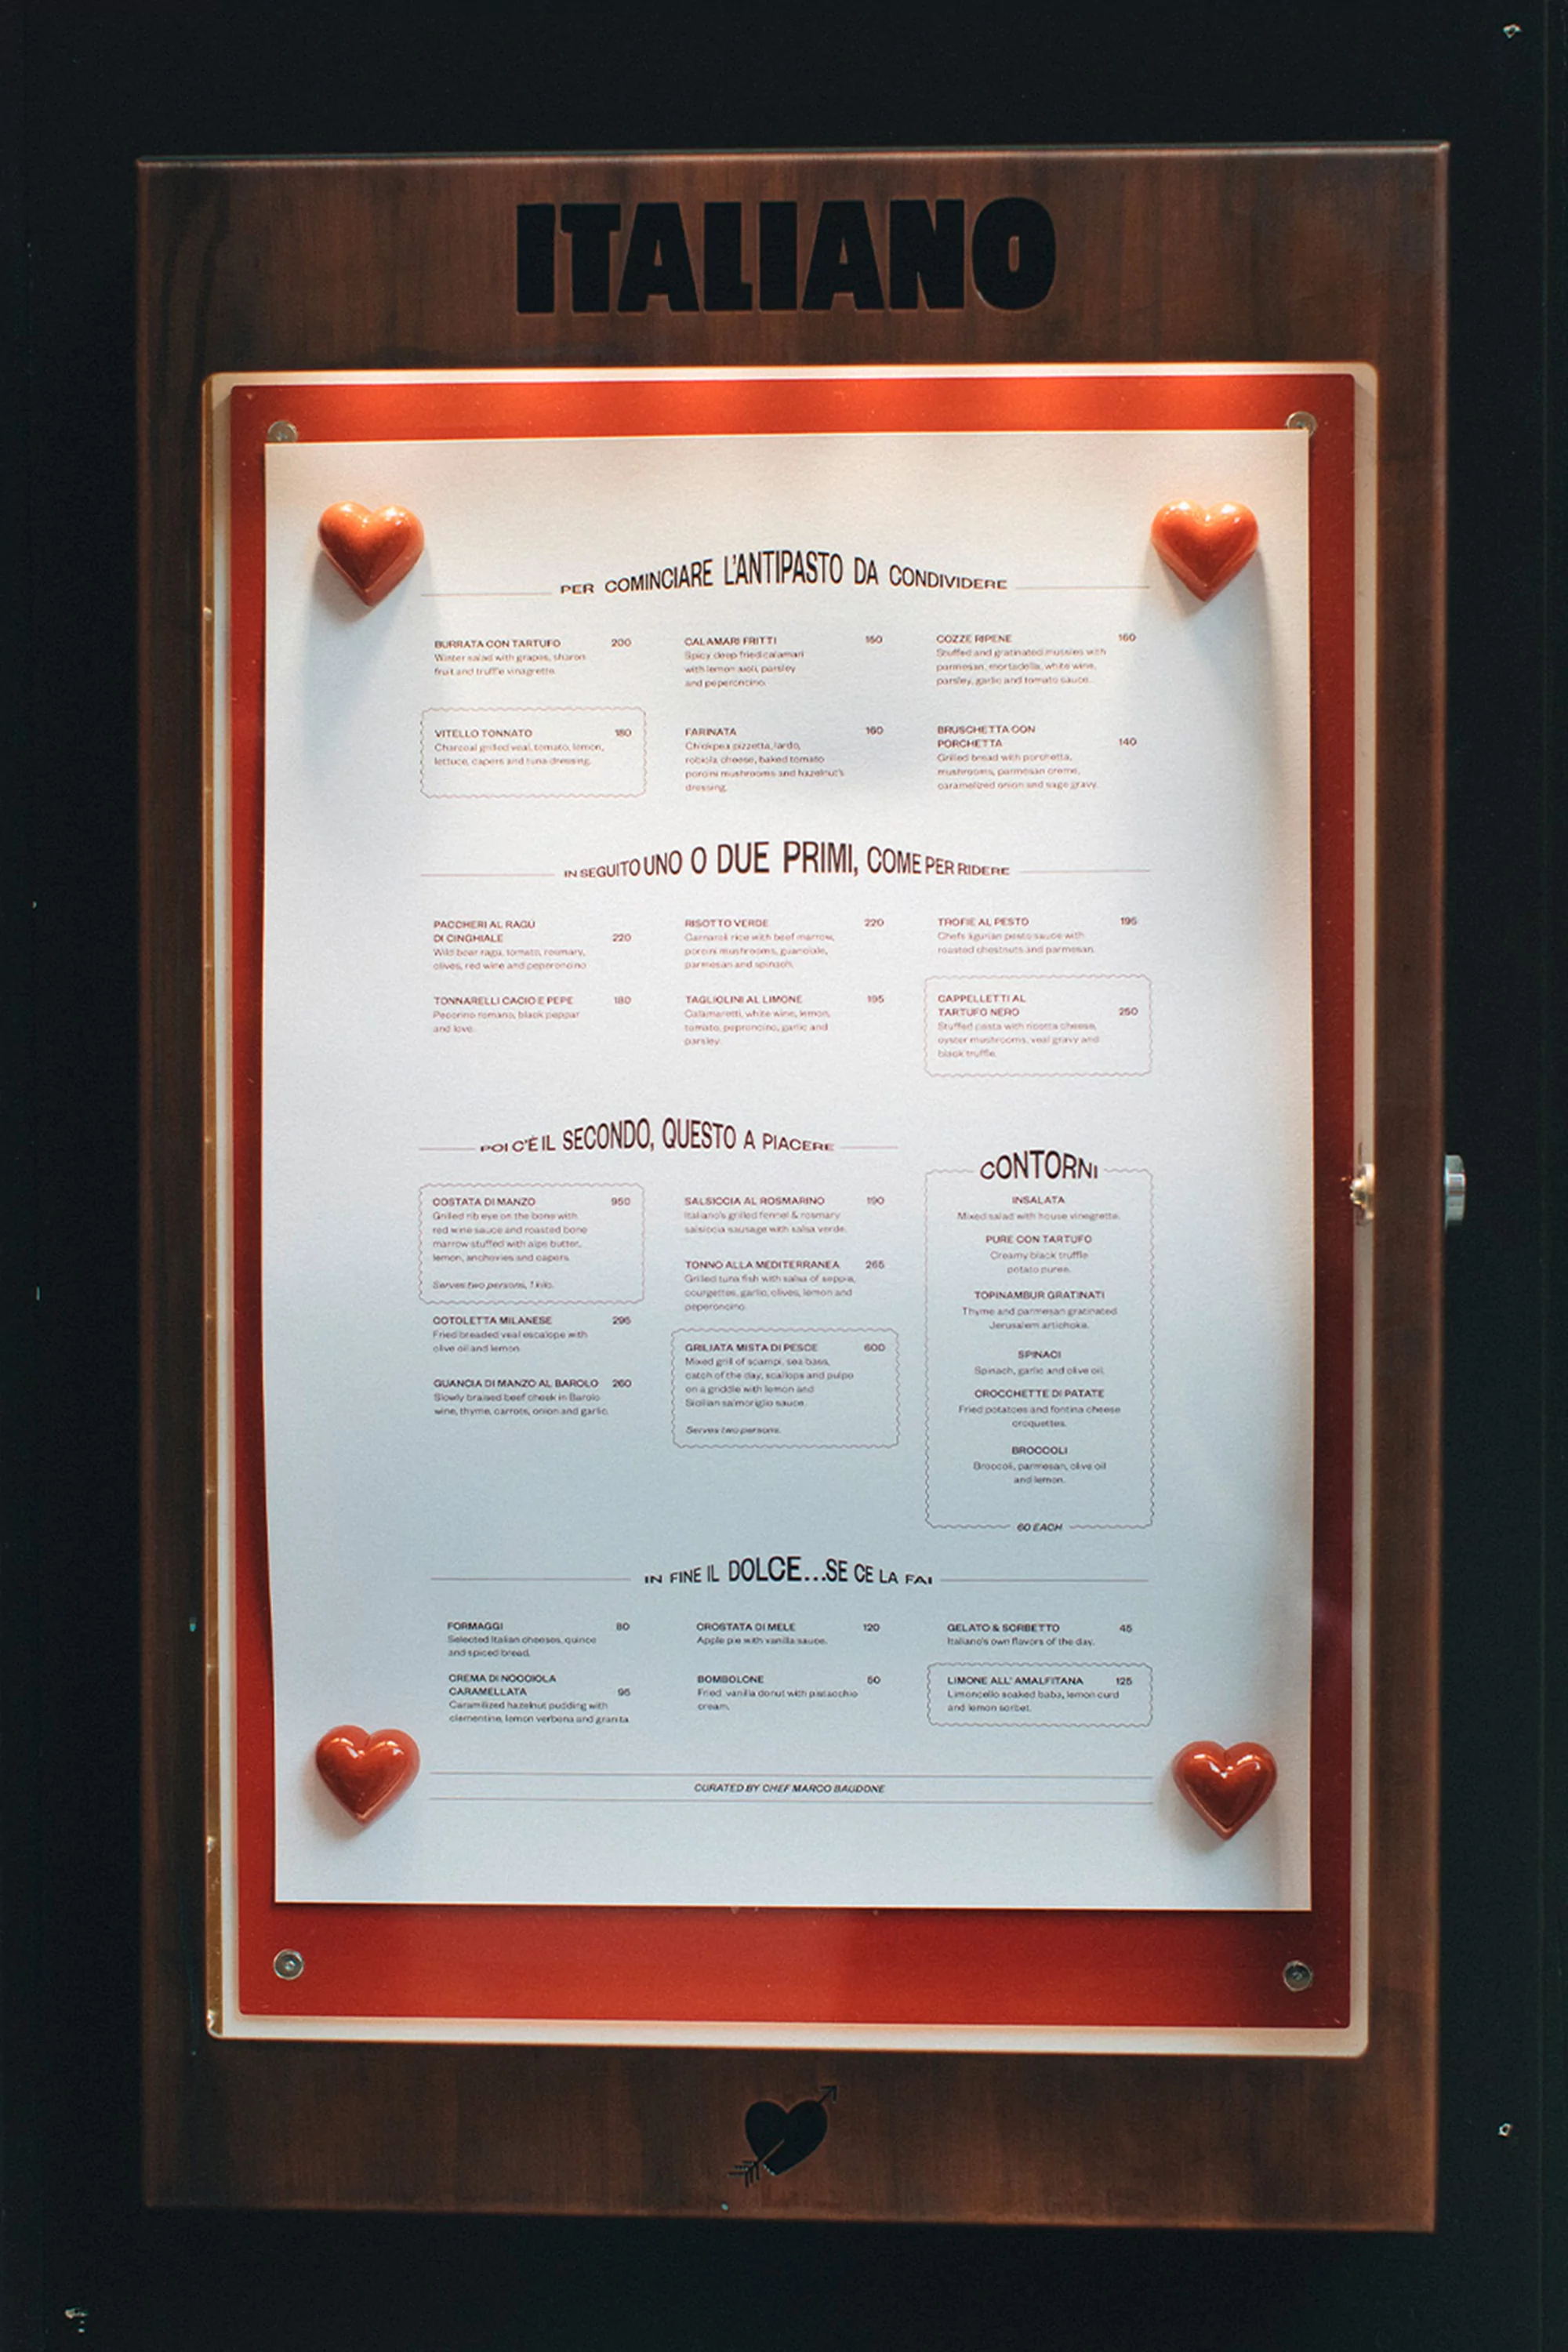 ITALIANO
PER COMINCIARE L'ANTIPASTO DA CONDIVIDERE
BURRATA CON TARTUFO 200
Winter salad with grapes, sharon
fruit and truffle vinagrette.
CALAMARI FRITTI 150
Spicy deep fried calamari
with lemon aioli, parsley
and peperoncino.
COZZE RIPIENE 160
Stuffed and gratinated mussles with
parmesan, mortadella, white wine,
parsley, garlic and tomato sauce.
VITELLO TONNATO 180
Charcoal grilled veal, tomato, lemon,
lettuce, capers and tuna dressing.
FARINATA 160
Chickpea pizzetta, lardo,
robiola cheese, baked tomato
porcini mushrooms and hazelnut's
dressing.
BRUSCHETTA CON
PORCHETTA 140
Grilled bread with porchetta,
mushrooms, parmesan creme,
caramelized onion and sage gravy.
IN SEGUITO UNO O DUE PRIMI, COME PER RIDERE
PACCHERI AL RAGÙ
DI CINGHIALE 220
Wild boar ragu, tomato, rosmary,
olives, red wine and peperoncino
RISOTTO VERDE 220
Carnaroli rice with beef marrow,
porcini mushrooms, guanciale,
parmesan and spinach.
TROFIE AL PESTO 195
Chefs ligurian pesto sauce with
roasted chestnuts and parmesan.
TONNARELLI CACIO E PEPE 180
Pecorino romano, black peppar
and love.
TAGLIOLINI AL LIMONE 195
Calamaretti, white wine, lemon,
tomato, peproncino, garlic and
parsley.
CAPPELLETTI AL
TARTUFO NERO 250
Stuffed pasta with ricotta cheese,
oyster mushrooms, veal gravy and
black truffle.
POI C'È IL SECONDO, QUESTO A PIACERE
COSTATA DI MANZO 950
Grilled rib eye on the bone with
red wine sauce and roasted bone
marrow stuffed with alps butter,
lemon, anchovies and capers.
Serves two persons, 1 kilo.
COTOLETTA MILANESE 295
Fried breaded veal escalope with
olive oil and lemon.
GUANCIA DI MANZO AL BAROLO 260
Slowly braised beef cheek in Barolo
wine, thyme, carrots, onion and garlic.
SALSICCIA AL ROSMARINO 190
Italiano's grilled fennel & rosmary
salsiccia sausage with salsa verde.
TONNO ALLA MEDITERRANEA 265
Grilled tuna fish with salsa of seppia,
courgettes, garlic, olives, lemon and
peperoncino.
GRILIATA MISTA DI PESCE 600
Mixed grill of scampi, sea bass,
catch of the day, scallops and pulpo
on a griddle with lemon and
Sicilian salmoriglio sauce.
Serves two persons.
CONTORNI
INSALATA
Mixed salad with house vinegrette.
PURE CON TARTUFO
Creamy black truffle
potato puree.
TOPINAMBUR GRATINATI
Thyme and parmesan gratinated
Jerusalem artichoke.
SPINACI
Spinach, garlic and olive oil.
CROCCHETTE DI PATATE
Fried potatoes and fontina cheese
croquettes.
BROCCOLI
Broccoli, parmesan, olive oil
and lemon.
60 EACH
IN FINE IL DOLCE...SE CE LA FAI
FORMAGGI 80
Selected Italian cheeses, quince
and spiced bread.
CROSTATA DI MELE 120
Apple pie with vanilla sauce.
GELATO & SORBETTO 45
Italiano's own flavors of the day.
CREMA DI NOCCIOLA
CARAMELLATA 95
Caramilized hazelnut pudding with
clementine, lemon verbena and granita.
BOMBOLONE 50
Fried vanilla donut with pistacchio
cream.
LIMONE ALL' AMALFITANA 125
Limoncello soaked baba, lemon curd
and lemon sorbet.
CURATED BY CHEF MARCO BAUDONE